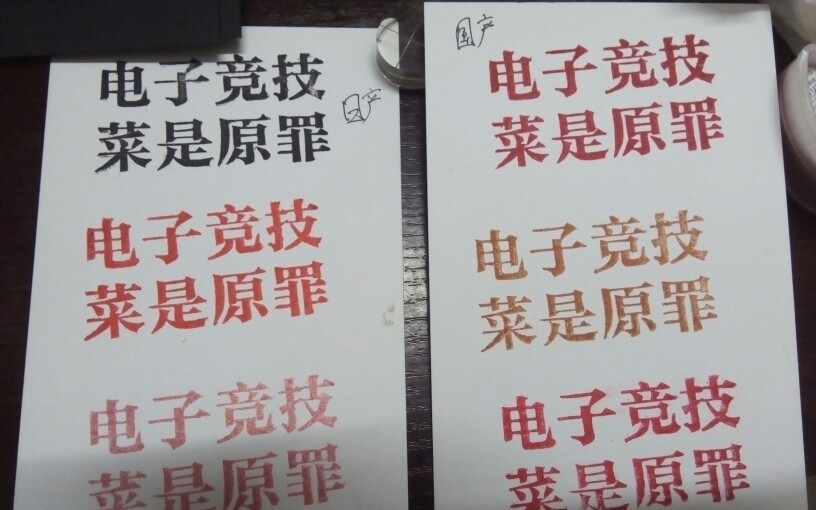 电子竞技
菜是原罪
日产
电子竞技
菜是原罪
电子竞技
菜是原罪
国产
电子竞技
菜是原罪
电子竞技
菜是原罪
电子竞技
菜是原罪